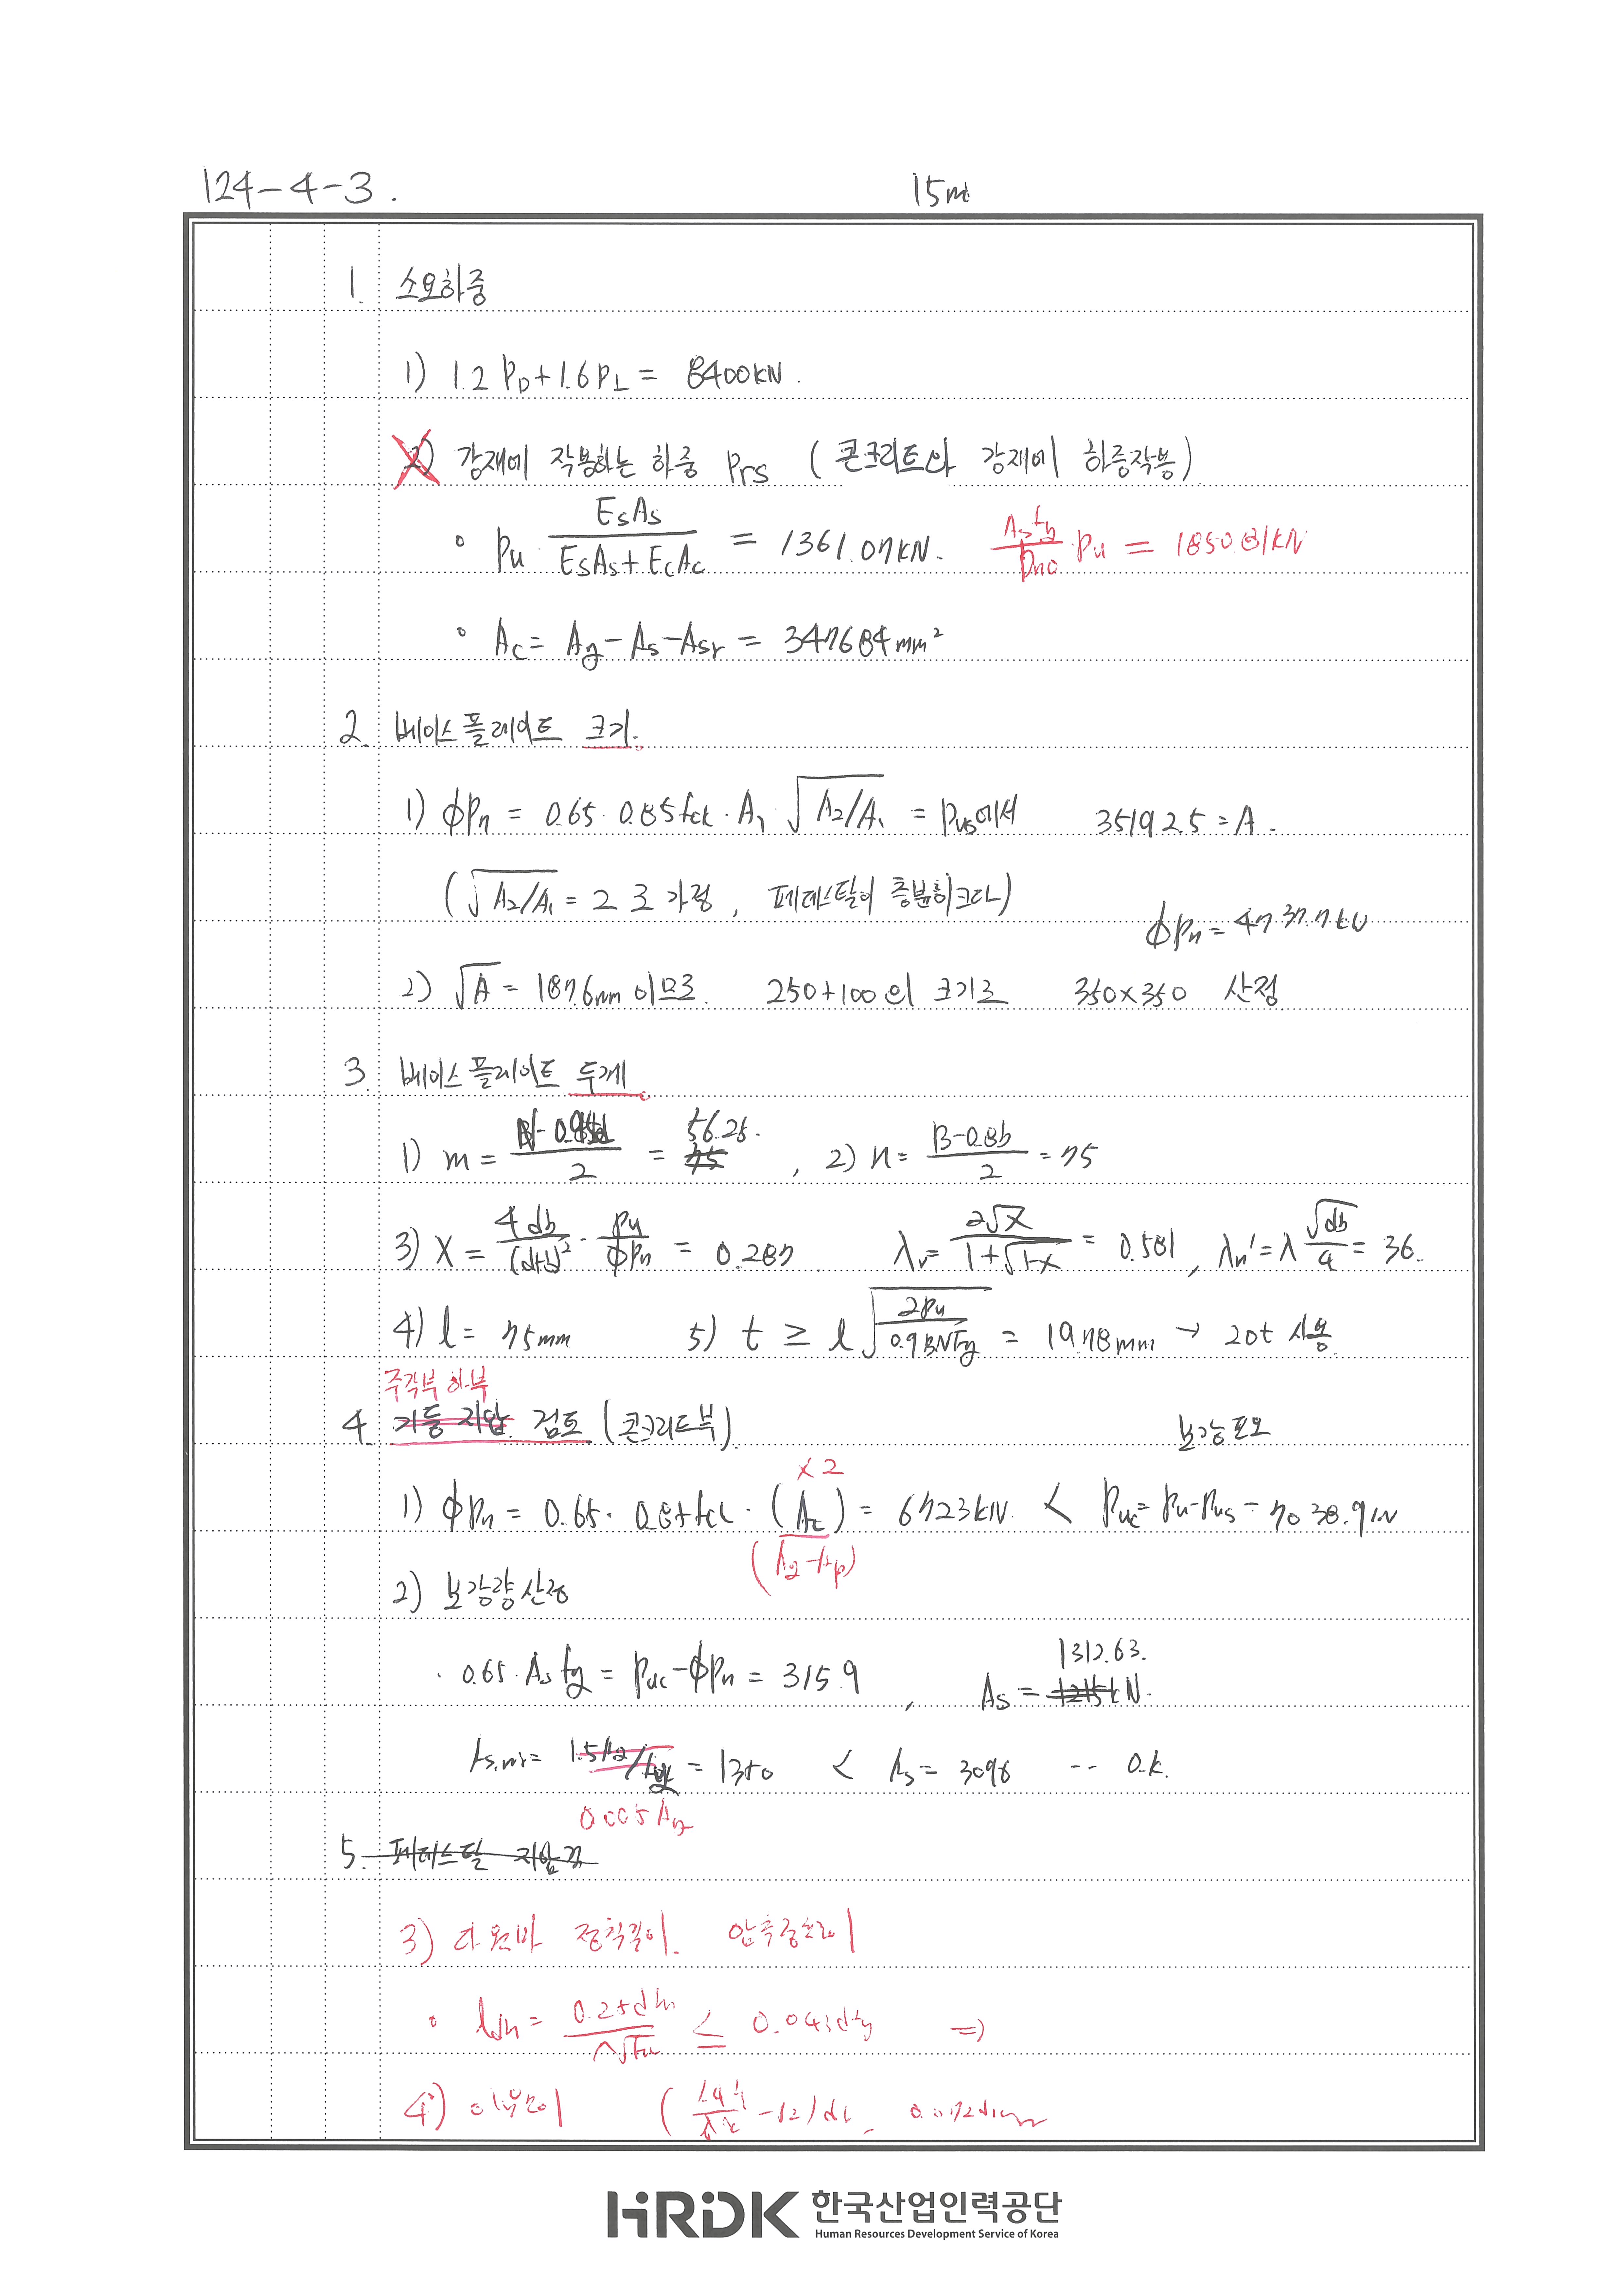 124-4-3.
15m
1. 소요하중
1) 1.2 PD + 1.6 PL = 8400 kN.
2) 강재에 작용하는 하중 Prs (콘크리트와 강재에 하중작용)
∘ Pu · EsAs / (EsAs + EcAc) = 1361.07 kN. Asfy/Pno Pu = 1850.81 kN
∘ Ac = Ag - As - Asr = 347684 mm²
2. 베이스플레이트 크기.
1) ϕPn = 0.65 · 0.85 fck · A1 √(A2/A1) = Pus에서 35192.5 = A.
(√(A2/A1) = 2 로 가정, 페데스탈이 충분히 크다)
ϕPn = 4737.7 kN
2) √A = 187.6mm 이므로. 250+100 의 크기로 350×350 산정
3. 베이스플레이트 두께
1) m = / 2 = 56.25. , 2) n = (B-0.8b) / 2 = 75
3) X = 4db/(d+b)² · Pu/ϕPn = 0.287 λ = 2√X / (1+√(1-X)) = 0.581, λn' = λ √db/4 = 36.
4) l = 75mm 5) t ≥ l √(2Pu / 0.9BNFy) = 19.78mm → 20t 사용
주각부 하부
4. 기둥 지압 검토 (콘크리트부) 보강필요
×2
1) ϕPn = 0.65 · 0.85 fck · (Ac) = 6723 kN < Puc = Pu - Pus = 7038.9 kN
(Ag-Ap)
2) 보강량 산정
· 0.65 · As fy = Puc - ϕPn = 315.9 , As = 1312.63.
As,min = = 1350 < As = 3096 -- O.K.
0.005 Ag
5. 페데스탈 지압
3) 다웰바 정착길이. 압축
∘ = 0.25d / √ ≤ 0.043d fy ⇒
4)
HRDK 한국산업인력공단
Human Resources Development Service of Korea